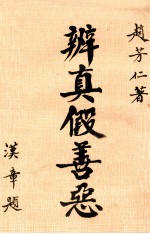 趙芳仁著
辨真假善惡
漢章題